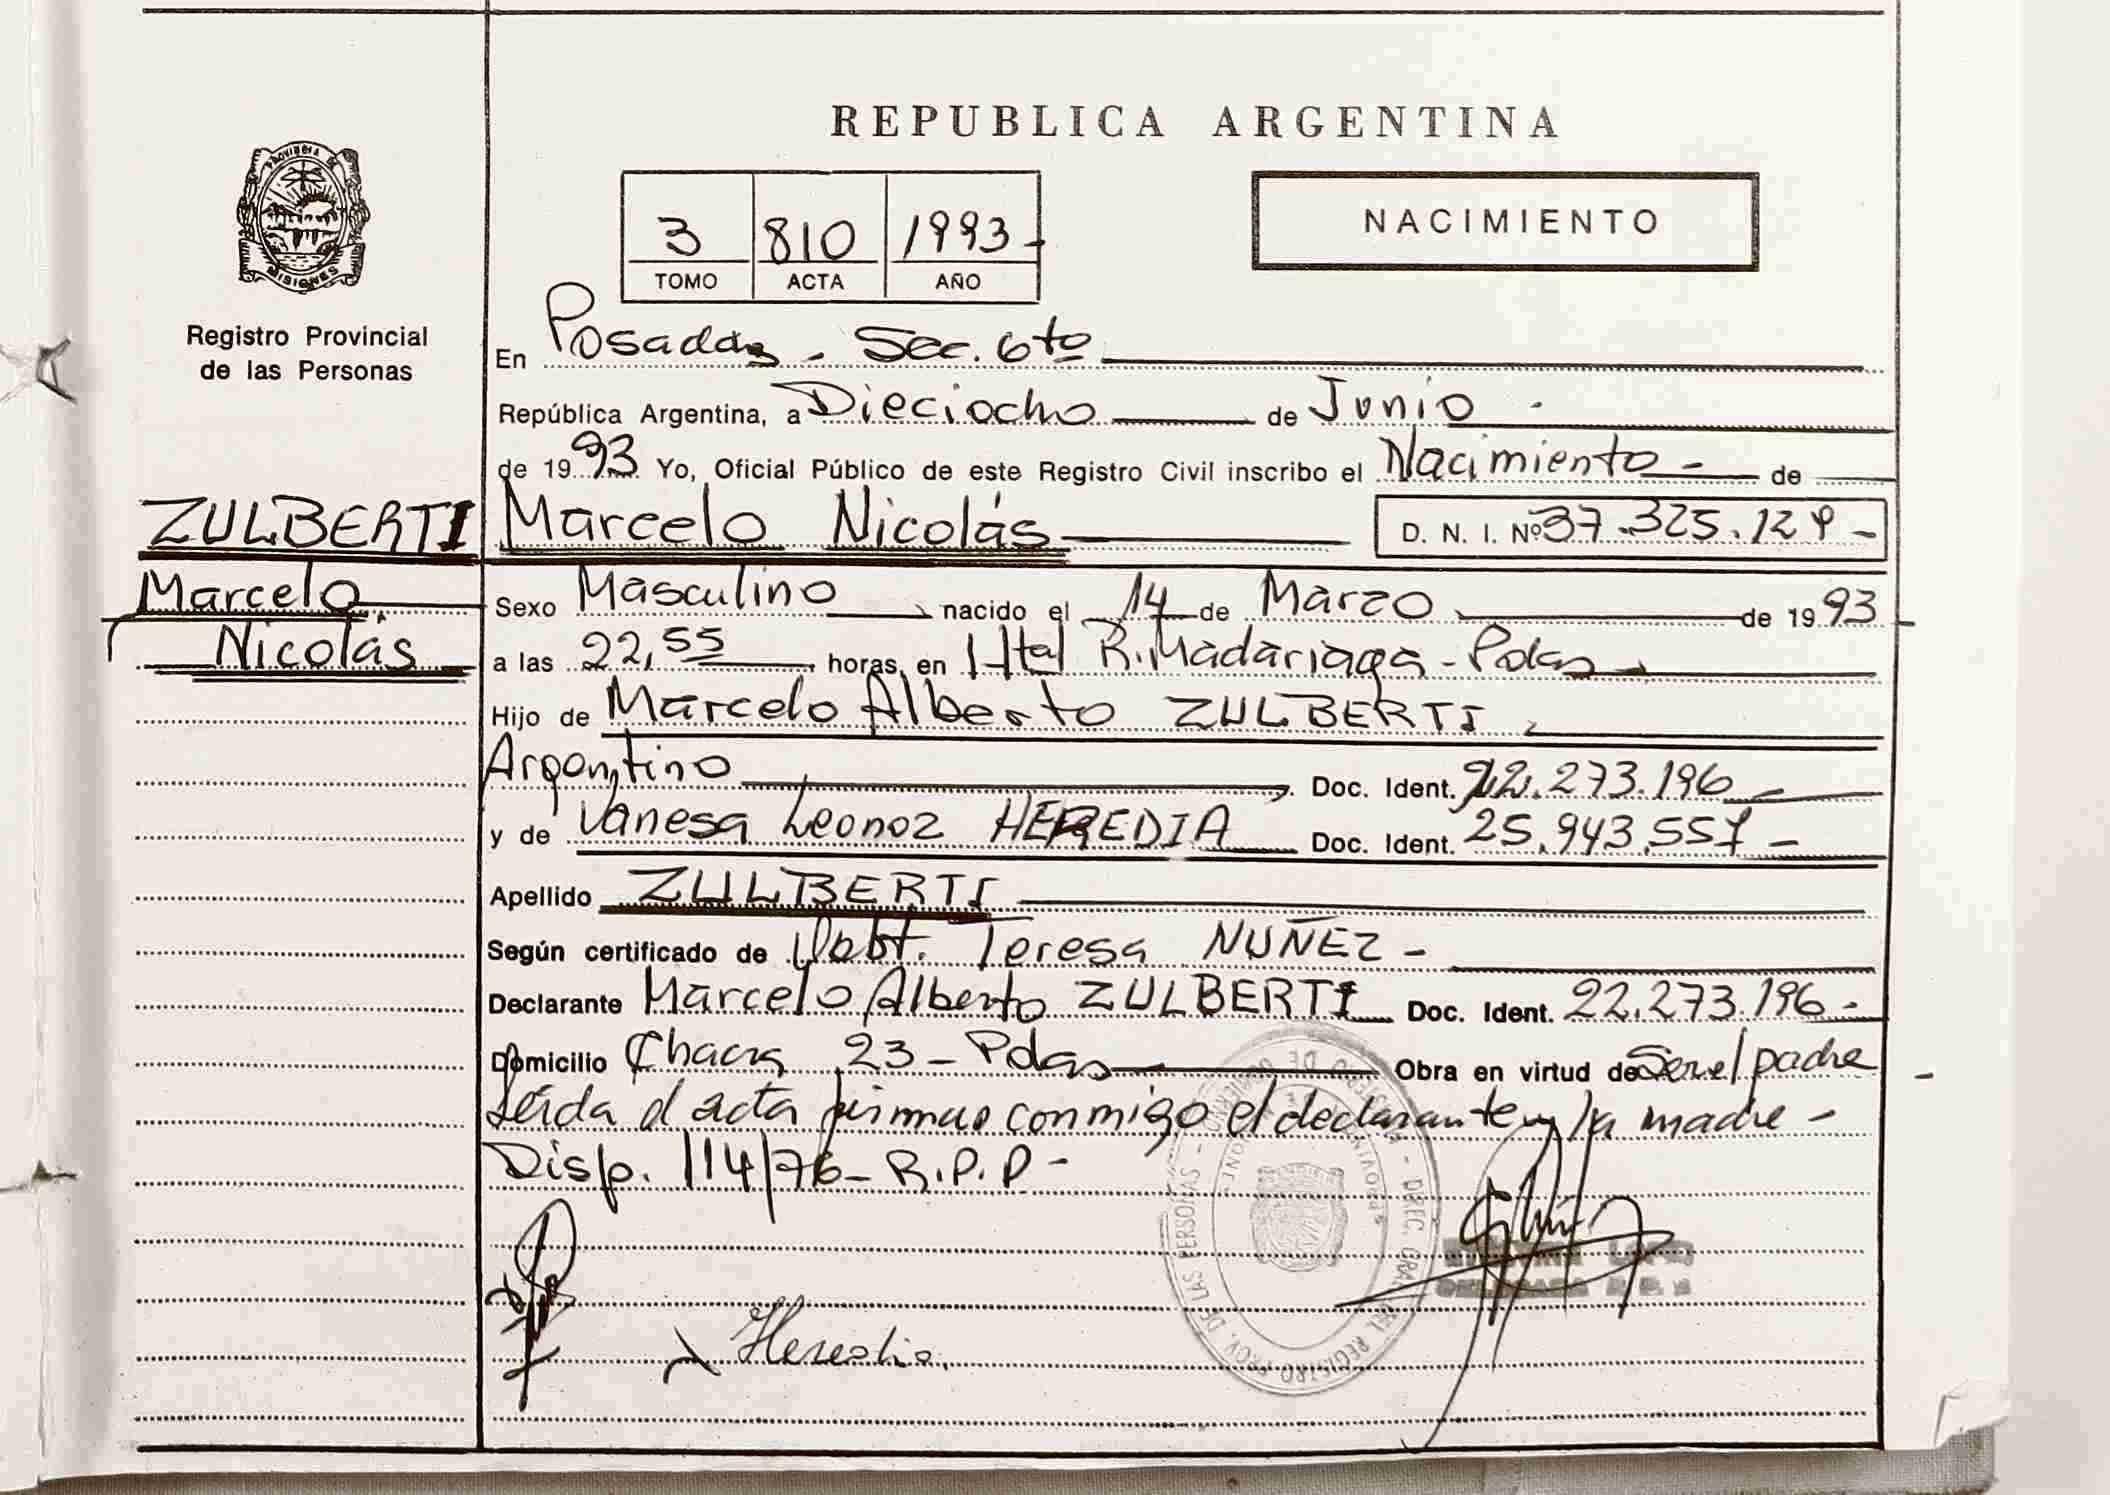 REPUBLICA ARGENTINA
PROVINCIA DE MISIONES
Registro Provincial
de las Personas
3 810 1993-
TOMO ACTA AÑO
NACIMIENTO
En Posadas - Sec. 6to
República Argentina, a Dieciocho de Junio -
de 1993 Yo, Oficial Público de este Registro Civil inscribo el Nacimiento - de
ZULBERTI Marcelo Nicolás D. N. I. Nº 37.325.129 -
Marcelo Sexo Masculino, nacido el 14 de Marzo de 1993
Nicolás a las 22,55 horas, en Htal R. Madariaga - Pdas -
Hijo de Marcelo Alberto ZULBERTI
Argentino Doc. Ident. 22.273.196 -
y de Vanesa Leonor HEREDIA Doc. Ident. 25.943.557 -
Apellido ZULBERTI
Según certificado de Obst. Teresa NUÑEZ -
Declarante Marcelo Alberto ZULBERTI Doc. Ident. 22.273.196 -
Domicilio Chacra 23 - Pdas Obra en virtud de Ser el padre -
Leída el acta firman conmigo el declarante y la madre -
Disp. 114/76 - R.P.P -
Heredia.